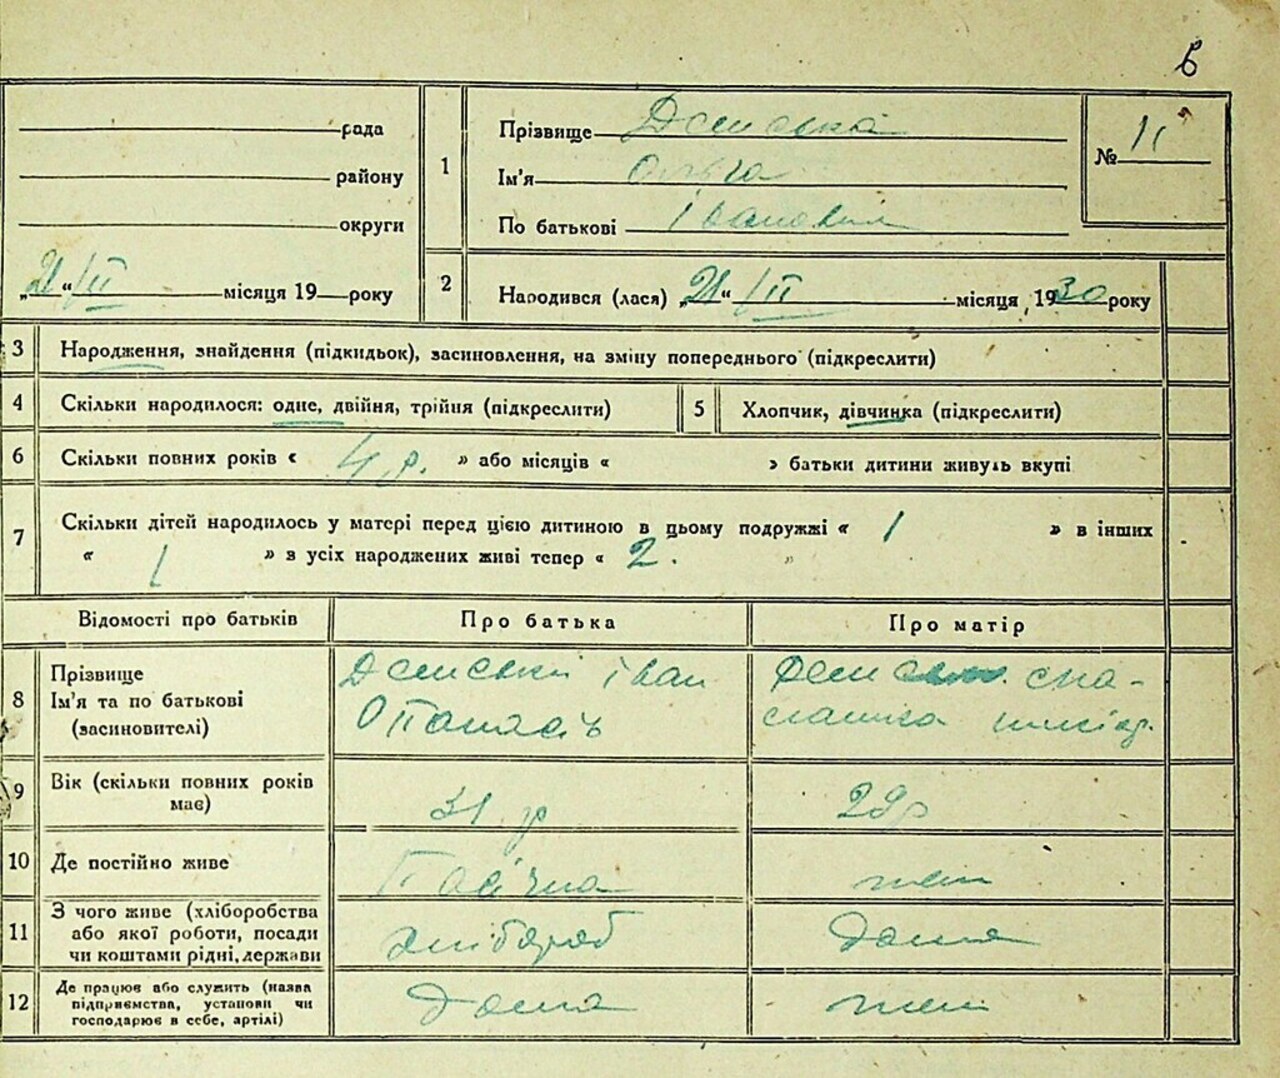 6
рада
району
округи
„21“ /II місяця 19 року
1
Прізвище
Ім'я Ольга
По батькові Івановна
№ 11
2
Народився (лася) „21“ /II місяця, 1930 року
3 Народження, знайдення (підкидьок), засиновлення, на зміну попереднього (підкреслити)
4 Скільки народилося: одне, двійня, трійня (підкреслити)
5 Хлопчик, дівчинка (підкреслити)
6 Скільки повних років « 4 р. » або місяців « » батьки дитини живуть вкупі
7 Скільки дітей народилось у матері перед цією дитиною в цьому подружжі « 1 » в інших
« / » з усіх народжених живі тепер « 2. »
Відомості про батьків
Про батька
Про матір
8
Прізвище
Ім'я та по батькові
(засиновителі)
Іван
Опанасів
9
Вік (скільки повних років
має)
31 р
29 р
10 Де постійно живе
Пасічна
теж
11
З чого живе (хліборобства
або якої роботи, посади
чи коштами рідні, держави
хлібороб
дома
12
Де працює або служить (назва
підприємства, установи чи
господарює в себе, артілі)
дома
теж